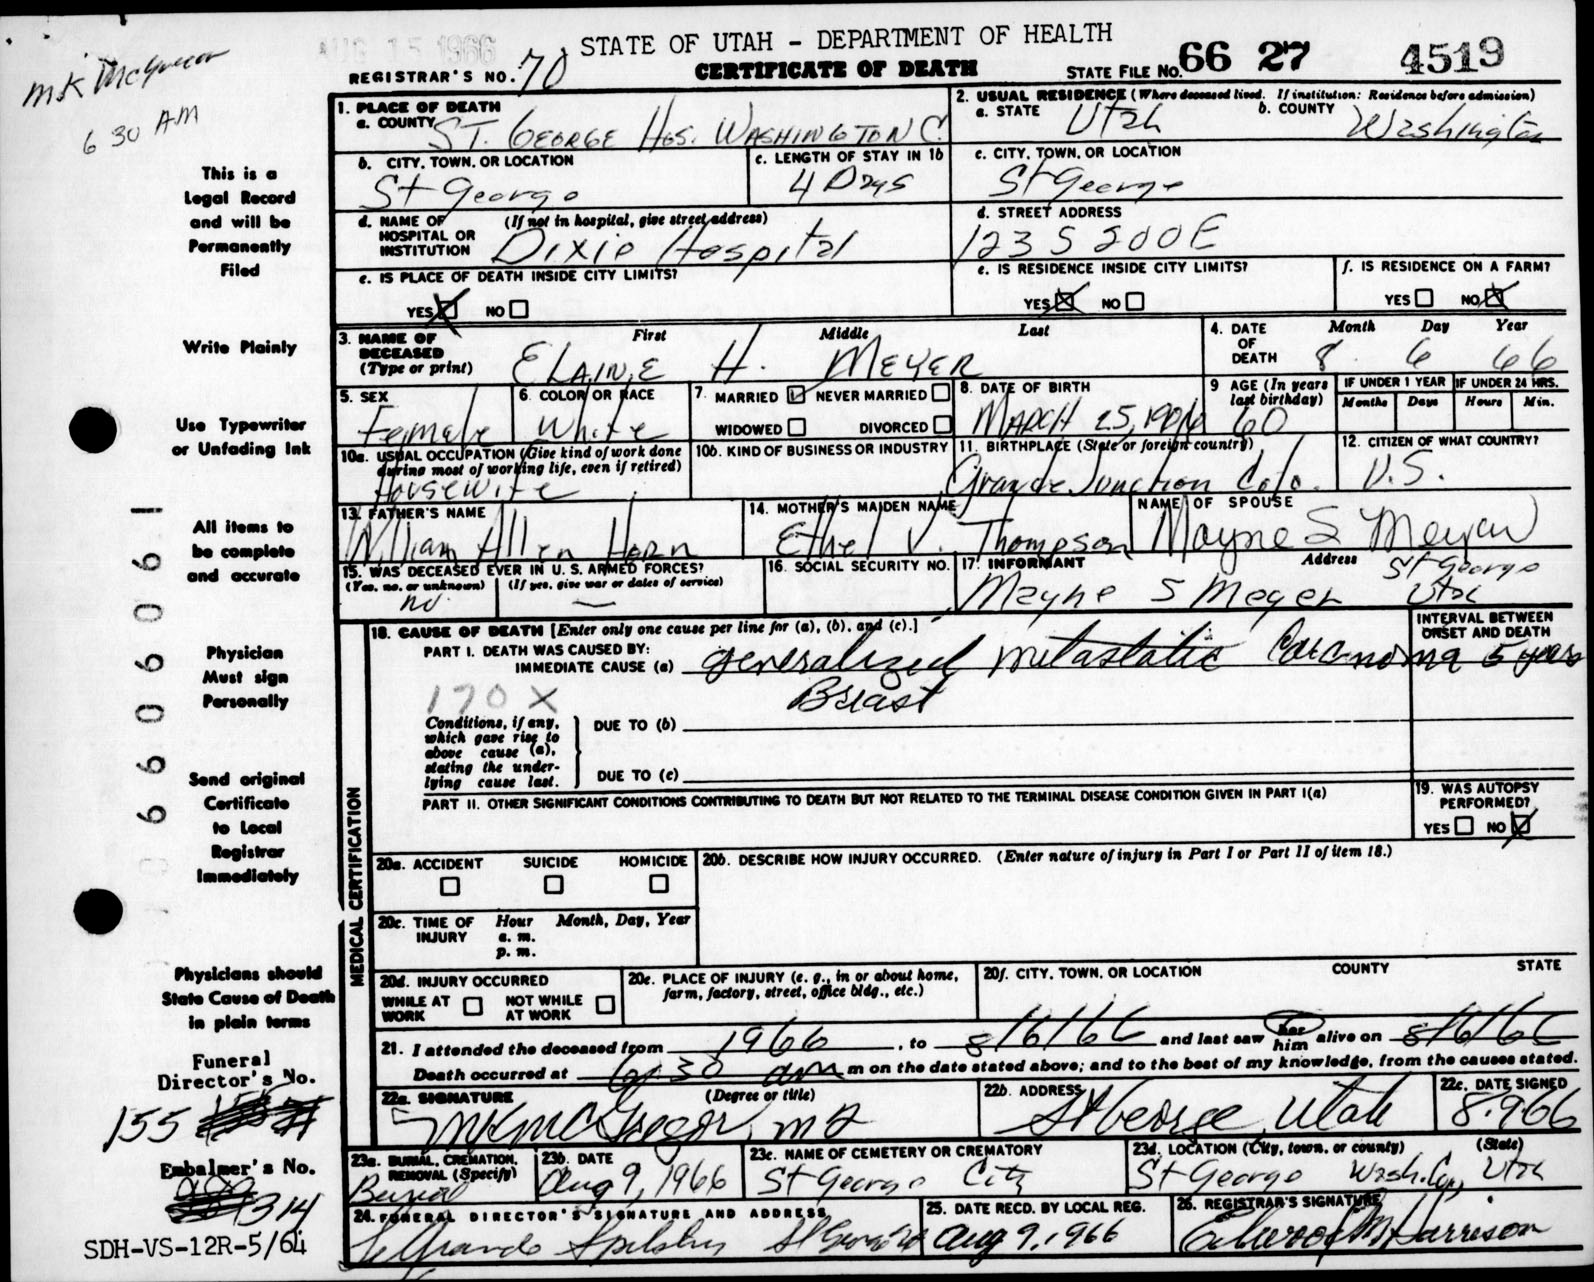 AUG 15 1966
STATE OF UTAH - DEPARTMENT OF HEALTH
CERTIFICATE OF DEATH
REGISTRAR'S NO. 70
STATE FILE NO. 66 27 4519
6 30 AM
This is a
Legal Record
and will be
Permanently
Filed
Write Plainly
Use Typewriter
or Unfading Ink
All items to
be complete
and accurate
Physician
Must sign
Personally
Send original
Certificate
to Local
Registrar
Immediately
Physicians should
State Cause of Death
in plain terms
Funeral
Director's No.
155
Embalmer's No.
314
SDH-VS-12R-5/64
1. PLACE OF DEATH
a. COUNTY ST. GEORGE HOS. WASHINGTON C.
2. USUAL RESIDENCE (Where deceased lived. If institution: Residence before admission)
a. STATE Utah b. COUNTY Washington
b. CITY, TOWN, OR LOCATION St George
c. LENGTH OF STAY IN 1b 4 Days
c. CITY, TOWN, OR LOCATION St George
d. NAME OF HOSPITAL OR INSTITUTION (If not in hospital, give street address) Dixie Hospital
d. STREET ADDRESS 123 S 200 E
e. IS PLACE OF DEATH INSIDE CITY LIMITS?
YES NO
e. IS RESIDENCE INSIDE CITY LIMITS?
YES NO
f. IS RESIDENCE ON A FARM?
YES NO
3. NAME OF DECEASED (Type or print) First Middle Last
ELAINE H. MEYER
4. DATE OF DEATH Month Day Year
8 6 66
5. SEX Female
6. COLOR OR RACE White
7. MARRIED NEVER MARRIED
WIDOWED DIVORCED
8. DATE OF BIRTH MARCH 25, 1906
9 AGE (In years last birthday) 60
IF UNDER 1 YEAR Months Days
IF UNDER 24 HRS. Hours Min.
10a. USUAL OCCUPATION (Give kind of work done during most of working life, even if retired)
Housewife
10b. KIND OF BUSINESS OR INDUSTRY
11. BIRTHPLACE (State or foreign country)
Grande Junction Colo.
12. CITIZEN OF WHAT COUNTRY?
U.S.
13. FATHER'S NAME
William Allen Horn
14. MOTHER'S MAIDEN NAME
Ethel V. Thompson
NAME OF SPOUSE
Mayne S Meyer
15. WAS DECEASED EVER IN U. S. ARMED FORCES?
(Yes, no, or unknown) (If yes, give war or dates of service)
no —
16. SOCIAL SECURITY NO.
17. INFORMANT Address
Mayne S Meyer St George Utah
MEDICAL CERTIFICATION
18. CAUSE OF DEATH [Enter only one cause per line for (a), (b), and (c).]
INTERVAL BETWEEN ONSET AND DEATH
PART I. DEATH WAS CAUSED BY:
IMMEDIATE CAUSE (a) generalized metastatic Carcinoma 5 years
Breast
170 X
Conditions, if any, which gave rise to above cause (a), stating the under-lying cause last.
DUE TO (b)
DUE TO (c)
PART II. OTHER SIGNIFICANT CONDITIONS CONTRIBUTING TO DEATH BUT NOT RELATED TO THE TERMINAL DISEASE CONDITION GIVEN IN PART I(a)
19. WAS AUTOPSY PERFORMED?
YES NO
20a. ACCIDENT SUICIDE HOMICIDE
20b. DESCRIBE HOW INJURY OCCURRED. (Enter nature of injury in Part I or Part II of item 18.)
20c. TIME OF INJURY Hour Month, Day, Year
a. m.
p. m.
20d. INJURY OCCURRED
WHILE AT WORK NOT WHILE AT WORK
20e. PLACE OF INJURY (e. g., in or about home, farm, factory, street, office bldg., etc.)
20f. CITY, TOWN, OR LOCATION COUNTY STATE
21. I attended the deceased from 1966, to 8/6/66 and last saw her him alive on 8/6/66
Death occurred at 6:30 am m on the date stated above; and to the best of my knowledge, from the causes stated.
22a. SIGNATURE (Degree or title)
MK McGregor, MD
22b. ADDRESS
St George, Utah
22c. DATE SIGNED
8-9-66
23a. BURIAL, CREMATION, REMOVAL (Specify)
Burial
23b. DATE
Aug 9, 1966
23c. NAME OF CEMETERY OR CREMATORY
St George City
23d. LOCATION (City, town, or county) (State)
St George Wash. Co, Utah
24. FUNERAL DIRECTOR'S SIGNATURE AND ADDRESS
25. DATE RECD. BY LOCAL REG.
Aug 9, 1966
26. REGISTRAR'S SIGNATURE
Elwood M Harrison